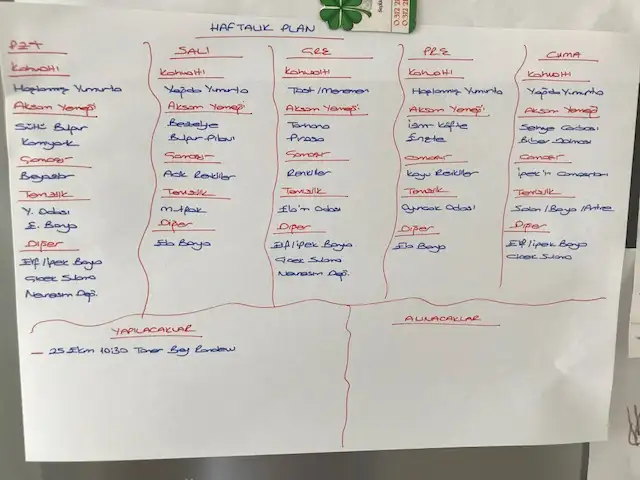 HAFTALIK PLAN
PZT
Kahvaltı
Haşlanmış Yumurta
Akşam Yemeği
Sütlü Bulgur
Karnıyarık
Çamaşır
Beyazlar
Temizlik
Y. Odası
E. Banyo
Diğer
Elif/İpek Banyo
Çiçek Sulama
Nevresim Değ.
SALI
Kahvaltı
Yağda Yumurta
Akşam Yemeği
Bezelye
Bulgur Pilavı
Çamaşır
Açık Renkliler
Temizlik
Mutfak
Diğer
Ela Banyo
ÇRŞ
Kahvaltı
Tost/Menemen
Akşam Yemeği
Tarhana
Pırasa
Çamaşır
Renkliler
Temizlik
Ela'nın Odası
Diğer
Elif/İpek Banyo
Çiçek Sulama
Nevresim Değ.
PRŞ
Kahvaltı
Haşlanmış Yumurta
Akşam Yemeği
Köfte
Erişte
Çamaşır
Koyu Renkliler
Temizlik
Oyuncak Odası
Diğer
Ela Banyo
CUMA
Kahvaltı
Yağda Yumurta
Akşam Yemeği
Şehriye Çorbası
Biber Dolması
Çamaşır
İpek'in Çamaşırları
Temizlik
Salon/Banyo/Antre
Diğer
Elif/İpek Banyo
Çiçek Sulama
YAPILACAKLAR
— 25 Ekm 10:30 Taner Bey Randevu
ALINACAKLAR